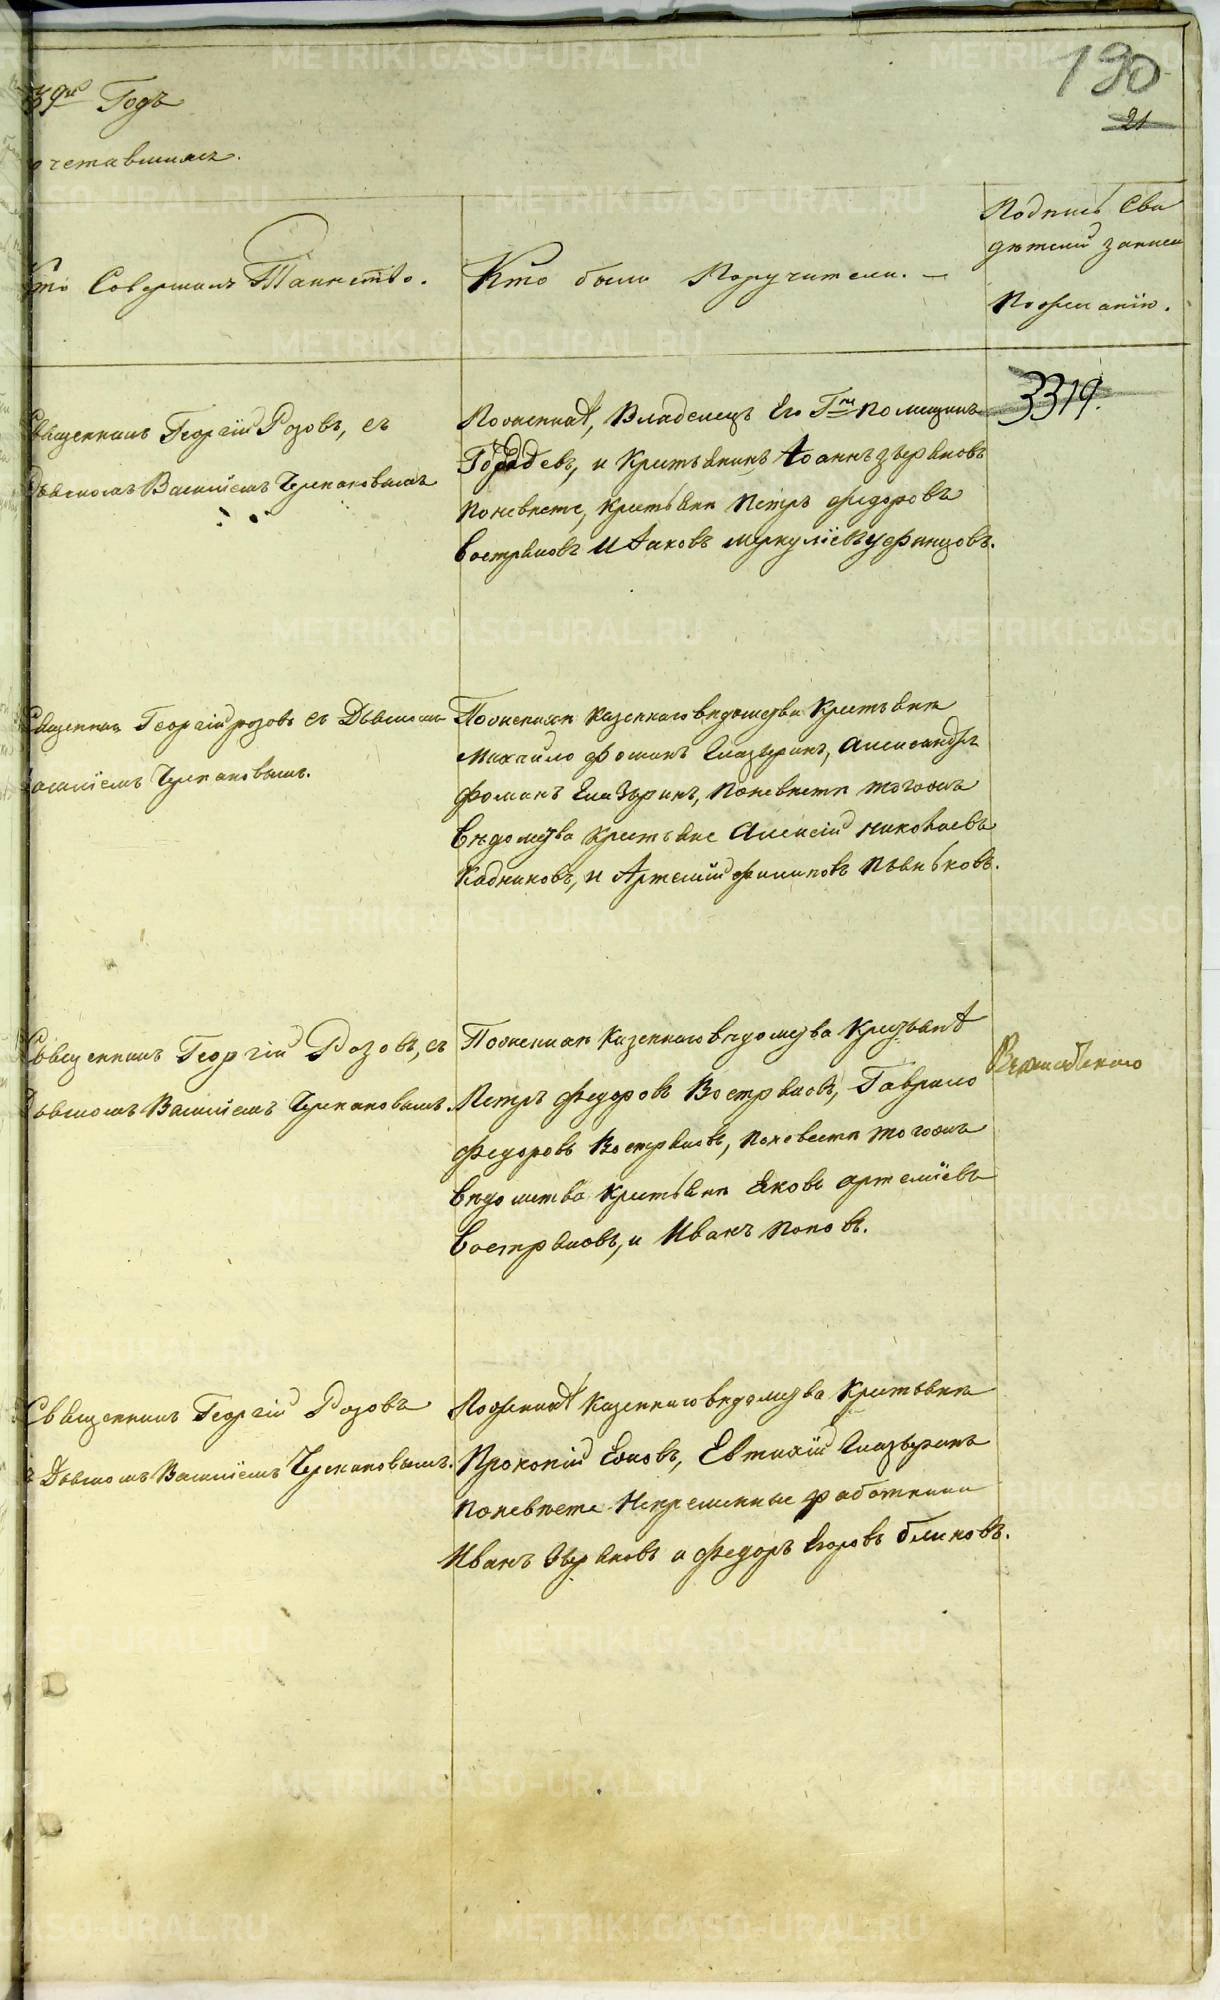 190
21
39го Годъ
очетавшихся.
Кто Совершалъ Таинство.
Кто были Поручители. —
Подпись Сви
дѣтелей записи
По желанію.
Священникъ Георгій Розовъ, съ
Дьячкомъ Василіемъ Черепановымъ
По женихѣ, Владелецъ Его Гнъ помещикъ
и Крестьянинъ Іоаннъ Зыряновъ
По невѣсте, крестьяне Петръ Федоровъ
Востряковъ И Іаковъ Меркуліевъ Уфинцовъ.
3319.
Священникъ Георгій Розовъ съ Дьячкомъ
Василіемъ Черепановымъ.
По женихѣ казеннаго вѣдомства Крестьяне
Михайло Фоминъ Глазыринъ, Александръ
Фоминъ Глазыринъ, По невѣсте тогожъ
Вѣдомства Крестьяне Алексій Николаевъ
Кадниковъ, и Артемій Филиповъ Пьянковъ.
Священникъ Георгій Розовъ, съ
Дьячкомъ Василіемъ Черепановымъ.
По женихѣ Казеннаго вѣдомства Крестьянѣ
Петръ Федоровъ Востряковъ, Гаврило
Федоровъ Востряковъ, По невесте тогожъ
Вѣдомства Крестьяне Яковъ Артеміевъ
Востряковъ, и Иванъ Поповъ.
Священникъ Георгій Розовъ
съ Дьячкомъ Василіемъ Черепановымъ.
По женихѣ Казеннаго вѣдомства Крестьяне
Прокопій Ежовъ, Евтихій Глазыринъ
По невѣсте Непременные работники
Иванъ Зыряновъ и Федоръ Егоровъ Блиновъ.
METRIKI.GASO-URAL.RU